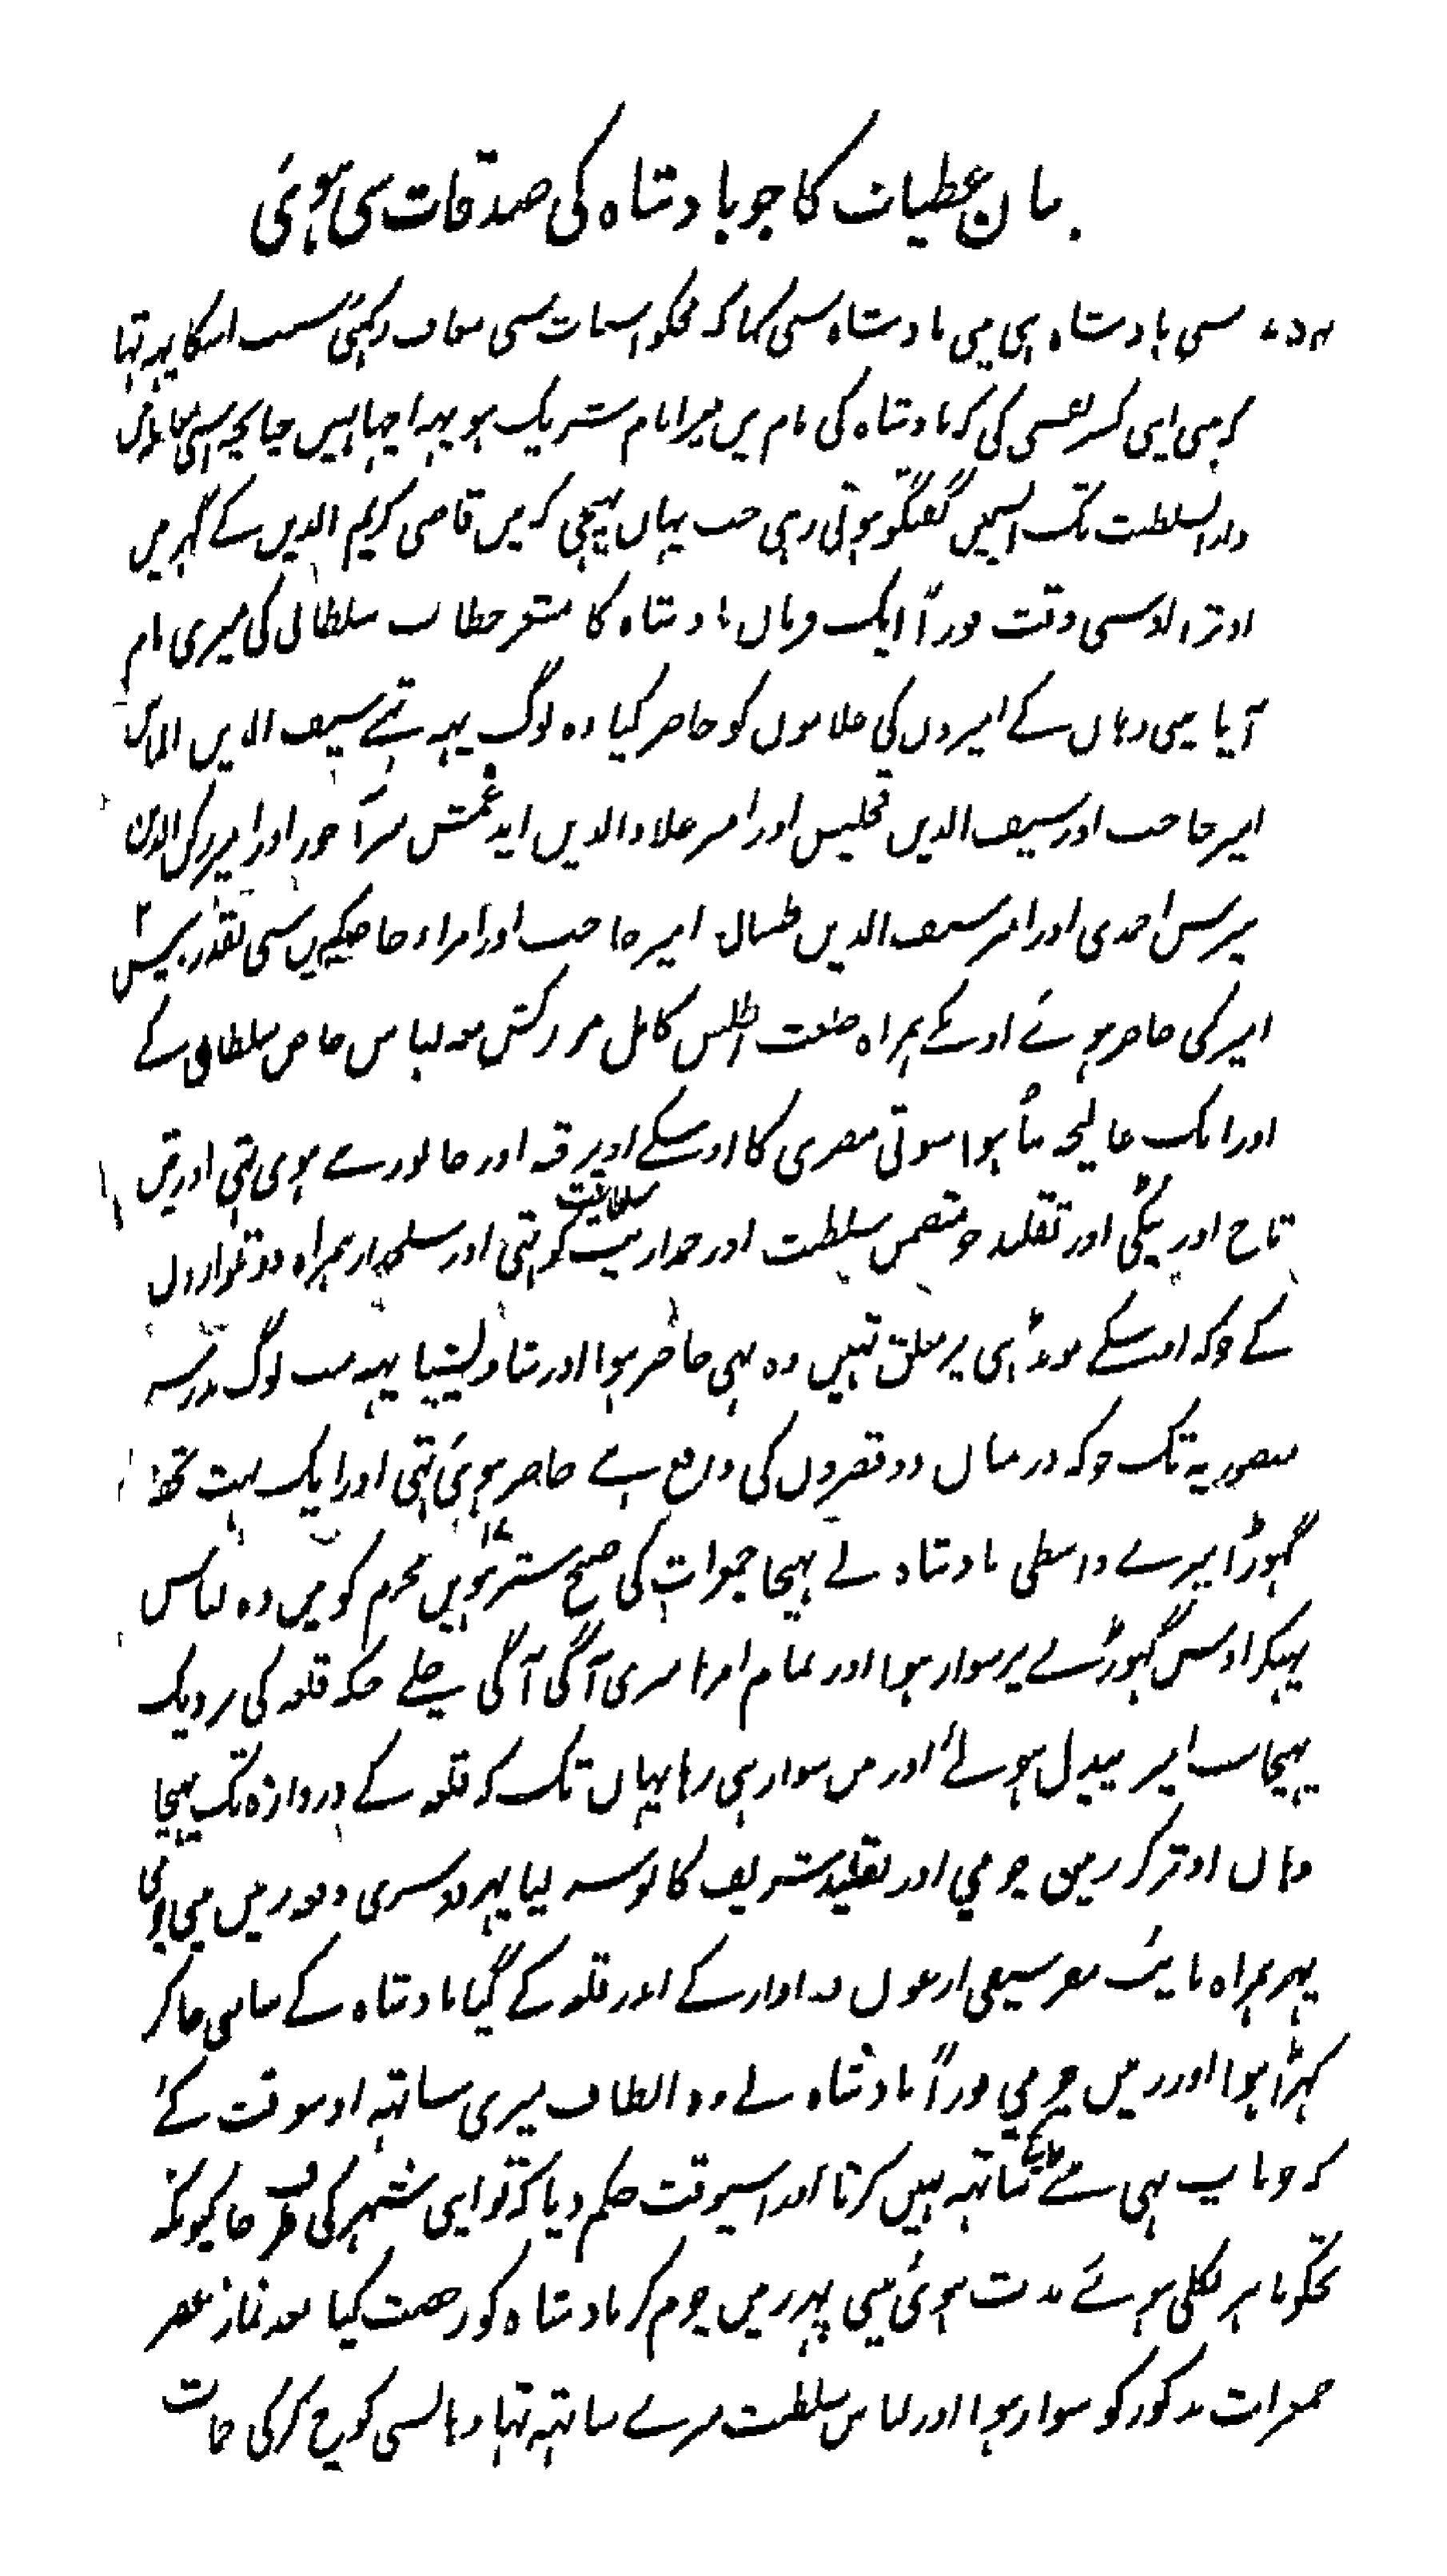 بیان عطیات کا جو بادشاہ کی صدقات سی ہوئی
سی بادشاہ ہی میں بادشاہ سی کہا کہ مجکو اسبات سی معاف رکہئی سبب اسکا یہہ تہا
کہ میں اپنی کسر نفسی کی کہ بادشاہ کی نام میں میرا نام شریک ہو یہہ اچہا نہیں چنانچہ اسی
دار السلطنت تک اسمیں گفتگو ہوتی رہی جب یہاں پہنچی کہ میں قاضی کریم الدین کے گہر میں
اوترا اوسی وقت فوراً ایک فرمان بادشاہ کا مشعر خطاب سلطانی کی میری نام
آیا میں وہاں کے امیروں کی غلاموں کو حاضر کیا وہ لوگ یہہ تہے سیف الدین الماس
امیر حاجب اور سیف الدین قجلیس اور امیر علاء الدین ایدغمش میر آخور اور امیر رکن الدین
بیبرس احمدی اور امیر سیف الدین طینال امیر حاجب اور امراء خاصکیہ میں سی بقدر بیس
امیر کی حاضر ہوئے اونکے ہمراہ خلعت اطلس کامل مزرکش معہ لباس خاص سلطانی کے
اور ایک عالیجہ بنا ہوا سوتی مصری کا اوسکے اوپر قبہ اور جانور بنے ہوی تہی اور تین
تاج اور پٹکی اور تقلید جو متضمن سلطنت اور خداریت سلطنت کو تہی اور سلحدار ہمراہ دو تلواروں
کے جو کہ اوسکے مونڈہی پر معلق تہیں وہ بہی حاضر ہوا اور شاویشیا یہہ سب لوگ مدرسہ
منصوریہ تک جو کہ درمیان دو قصروں کی واقع ہے حاضر ہوئی تہی اور ایک بہت تحفہ
گہوڑا میرے واسطی بادشاہ نے بہیجا جمعرات کی صبح سترہویں ۱۷ محرم کو میں وہ لباس
پہنکر اوس گہوڑے پر سوار ہوا اور تمام امرا میری آگی آگی چلے جبکہ قلعہ کی نزدیک
پہنچا سب امیر پیدل ہوئے اور میں سوار ہی رہا یہاں تک کہ قلعہ کے دروازہ تک پہنچا
وہاں اوتر کر زمین چومی اور تقلید شریف کا بوسہ لیا پہر دوسری دفعہ زمین میں چومی
پہر ہمراہ نائب مقر سیفی ارغون دوادار کے اندر قلعہ کے گیا بادشاہ کے سامنی جا کر
کہڑا ہوا اور زمین چومی فوراً بادشاہ نے وہ الطاف میری ساتہہ اوسوقت کئے
کہ جو باپ بہی بیٹے کے ساتہہ نہیں کرتا اور اسیوقت حکم دیا کہ تو اپنی شہر کی طرف جا کیونکہ
تجکو باہر نکلی ہوئے مدت ہوئی میں پہر زمین چوم کر بادشاہ کو رخصت کیا بعد نماز عصر
جمعرات مذکور کو سوار ہوا اور لباس سلطنت میرے ساتہہ تہا وہانسی کوچ کر کی جات